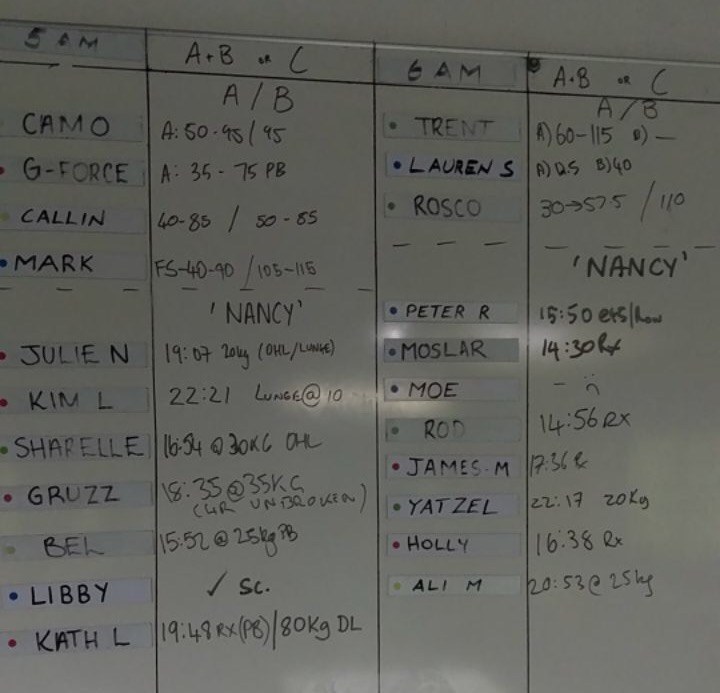 5 AM A+B or C
A/B
CAMO A: 50-95/95
G-FORCE A: 35-75 PB
CALLIN 40-85 / 50-85
MARK FS-40-90 /105-115
'NANCY'
JULIE N 19:07 20kg (OHL/LUNGE)
KIM L 22:21 LUNGE@10
SHARELLE 16:54 @30KG OHL
GRUZZ 18:35@35KG
UNBROKEN)
BEL 15:52@25kg PB
LIBBY ✓ Sc.
KATH L 19:48 RX(PB)/80Kg DL
6 AM A+B or C
A/B
TRENT A)60-115 B) —
LAUREN S B)40
ROSCO 30→57.5 / 110
'NANCY'
PETER R 15:50
MOSLAR 14:30 Rx
MOE -
ROD 14:56 RX
JAMES.M 17:36 Rx
YATZEL 22:17 20Kg
HOLLY 16:38 Rx
ALI M 20:53@25kg